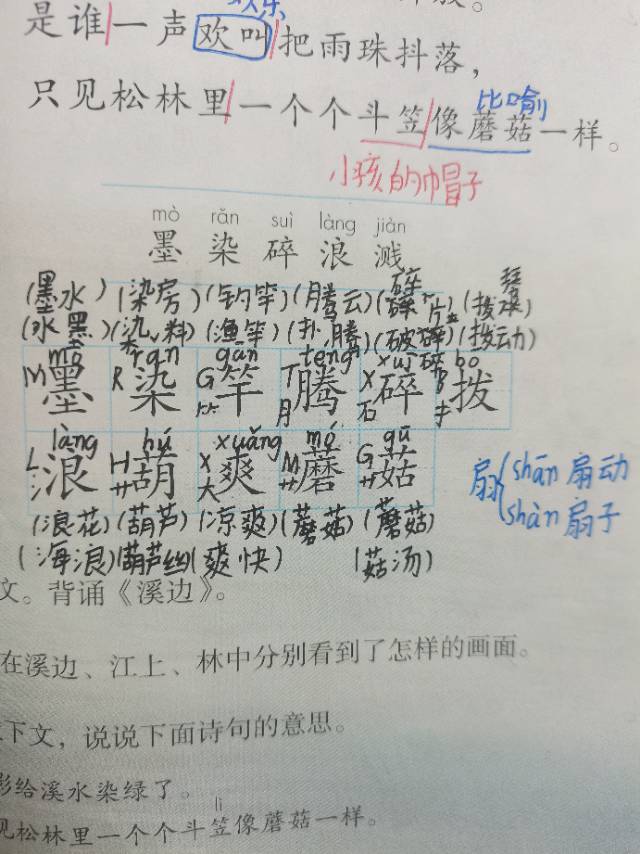 欢乐
是谁一声欢叫把雨珠抖落，
比喻
只见松林里一个个斗笠像蘑菇一样。
小孩的巾冒子
mò rǎn suì làng jiàn
墨 染 碎 浪 溅
(墨水)(染房)(钓竿)(腾云)(碎片)(拨
(水墨)(染料)(渔竿)(扑腾)(破碎)(拨动)
mò rǎn gān téng suì bō
M墨 R染 G竹竿 T月腾 X石碎 B扌拨
làng hú xuǎng mó gū
L氵浪 H艹葫 X大爽 M艹蘑 G艹菇
(浪花)(葫芦)(凉爽)(蘑菇)(蘑菇)
(海浪)(葫芦丝)(爽快) (菇汤)
扇 shān 扇动
shàn 扇子
文。背诵《溪边》。
在溪边、江上、林中分别看到了怎样的画面。
下文，说说下面诗句的意思。
影给溪水染绿了。
lì
见松林里一个个斗笠像蘑菇一样。